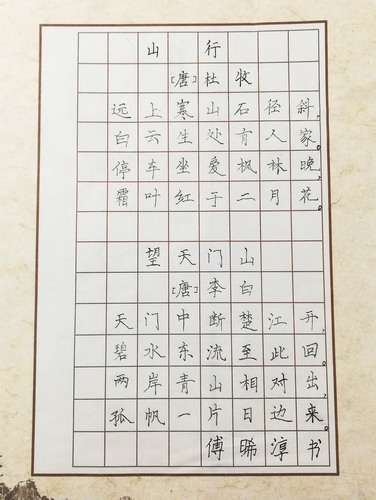 山行
[唐]杜牧
远上寒山石径斜,
白云生处有人家。
停车坐爱枫林晚,
霜叶红于二月花。
望天门山
[唐]李白
天门中断楚江开,
碧水东流至此回。
两岸青山相对出,
孤帆一片日边来。
傅晞淳书